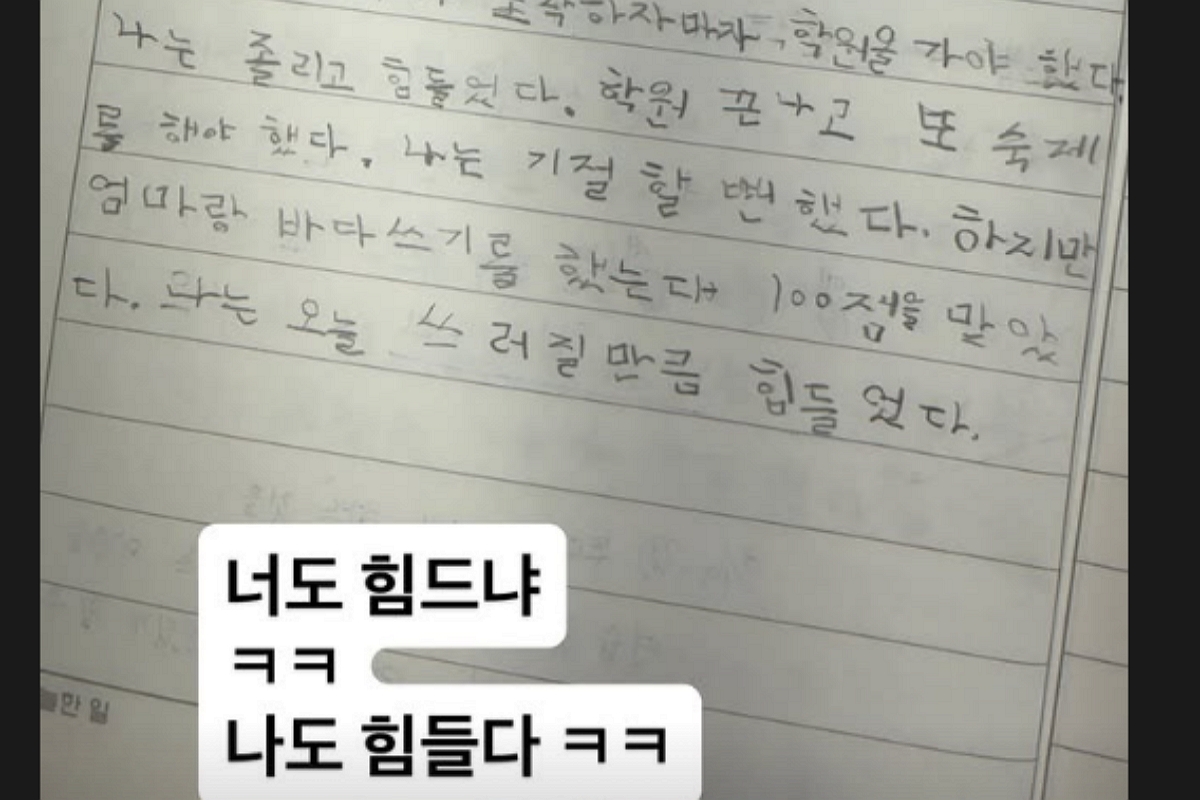 도착하자마자, 학원을 가야 했다.
나는 졸리고 힘들었다. 학원 끈나고 또 숙제
를 해야 했다. 나는 기절 할 뻔 했다. 하지만
엄마랑 바다쓰기를 했는다 100점을 맞앗
다. 나는 오늘 쓰러질만큼 힘들었다.
한 일
너도 힘드냐
ㅋㅋ
나도 힘들다 ㅋㅋ